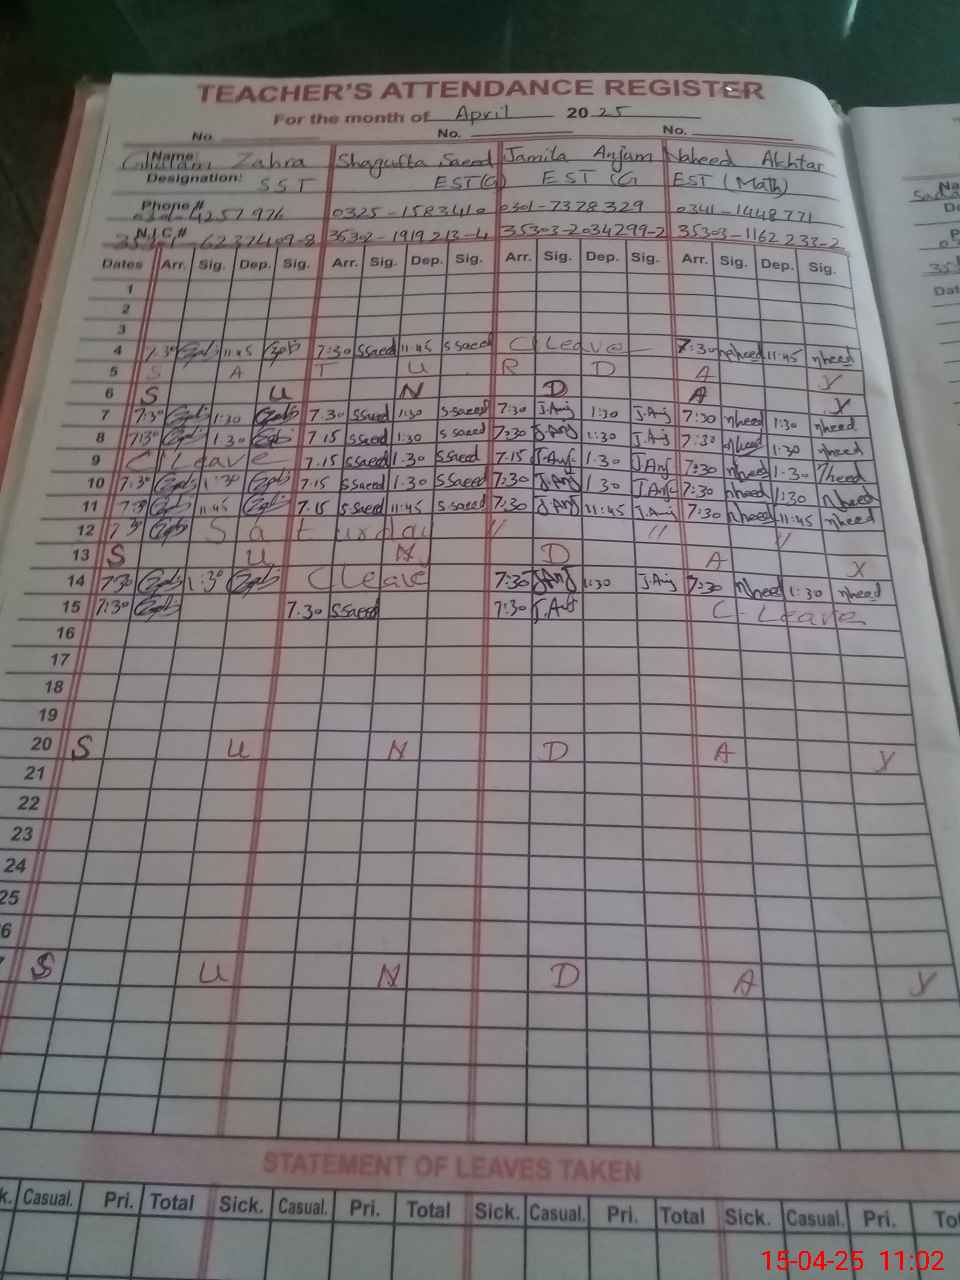 TEACHER'S ATTENDANCE REGISTER
For the month of April 2025
No. No. No.
Name: Ghulam Zahra Shagufta Saeed Jamila Anjum Naheed Akhtar
Designation: SST EST(G) EST (G EST (Math)
Phone # 0325-1583410 0301-7378329 0341-1448771
N.I.C.# 35302-1919213-4 35303-2034299-2 35303-1162233-2
Dates Arr. Sig. Dep. Sig. Arr. Sig. Dep. Sig. Arr. Sig. Dep. Sig. Arr. Sig. Dep. Sig.
1
2
3
4 7:30 11:45 7:30 SSaeed 11:45 SSaeed C Leave 7:30 nheed 11:45 nheed
5 S A T U R D A Y
6 S U N D A Y
7 7:30 1:30 7:30 SSaeed 1:30 S-Saeed 7:30 J.Anj 1:30 J.Anj 7:30 nheed 1:30 nheed
8 7:30 1:30 7:15 SSaeed 1:30 S Saeed 7:30 J.Anj 1:30 J.Anj 7:30 nheed 1:30 nheed
9 C Leave 7.15 SSaeed 1.30 SSaeed 7.15 J.Anj 1.30 J.Anj 7:30 nheed 1:30 nheed
10 7:30 1:30 7:15 SSaeed 1.30 SSaeed 7:30 J.Anj 1 30 J.Anj 7:30 nheed 1:30 nheed
11 7:30 11:45 7.15 SSaeed 11:45 S Saeed 7:30 J.Anj 11:45 J.Anj 7:30 nheed 11:45 nheed
12 7:30 Saturday // // //
13 S U N D A Y
14 7:30 1:30 C Leave 7:30 J.Anj 1:30 J.Anj 7:30 nheed 1:30 nheed
15 7:30 7.30 SSaeed 7:30 J.Anj C-Leave
16
17
18
19
20 S U N D A Y
21
22
23
24
25
6
S U N D A Y
STATEMENT OF LEAVES TAKEN
k. Casual. Pri. Total Sick. Casual. Pri. Total Sick. Casual. Pri. Total Sick. Casual. Pri. To
15-04-25 11:02